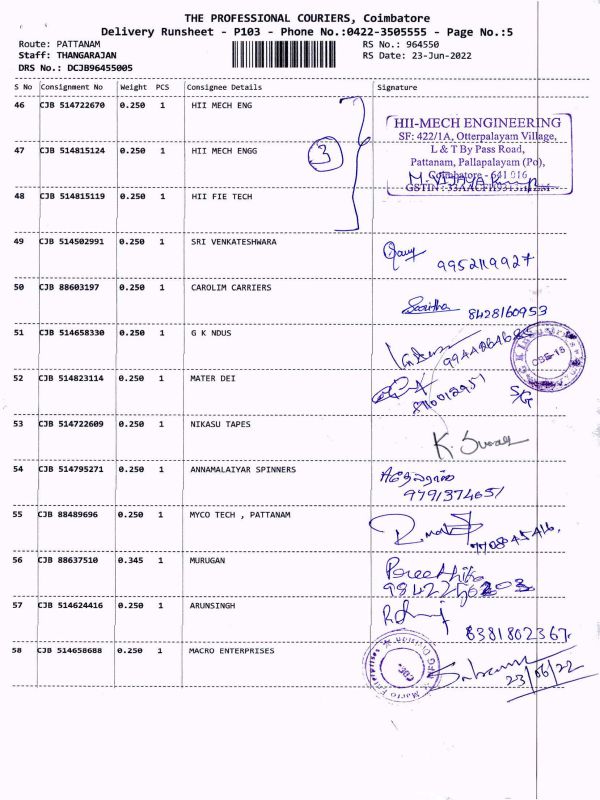 THE PROFESSIONAL COURIERS, Coimbatore
Delivery Runsheet - P103 - Phone No.:0422-3505555 - Page No.:5
Route: PATTANAM
RS No.: 964550
Staff: THANGARAJAN
RS Date: 23-Jun-2022
DRS No.: DCJB96455005
S No Consignment No Weight PCS Consignee Details Signature
46 CJB 514722670 0.250 1 HII MECH ENG
HII-MECH ENGINEERING
SF: 422/1A, Otterpalayam Village,
47 CJB 514815124 0.250 1 HII MECH ENGG
3
L & T By Pass Road,
Pattanam, Pallapalayam (Po),
Coimbatore - 641 016
48 CJB 514815119 0.250 1 HII FIE TECH
49 CJB 514502991 0.250 1 SRI VENKATESHWARA
50 CJB 88603197 0.250 1 CAROLIM CARRIERS
8428160953
51 CJB 514658330 0.250 1 G K NDUS
CBE-18
52 CJB 514823114 0.250 1 MATER DEI
53 CJB 514722609 0.250 1 NIKASU TAPES
54 CJB 514795271 0.250 1 ANNAMALAIYAR SPINNERS
9791374651
55 CJB 88489696 0.250 1 MYCO TECH , PATTANAM
56 CJB 88637510 0.345 1 MURUGAN
57 CJB 514624416 0.250 1 ARUNSINGH
6381802367
58 CJB 514658688 0.250 1 MACRO ENTERPRISES
23/06/22